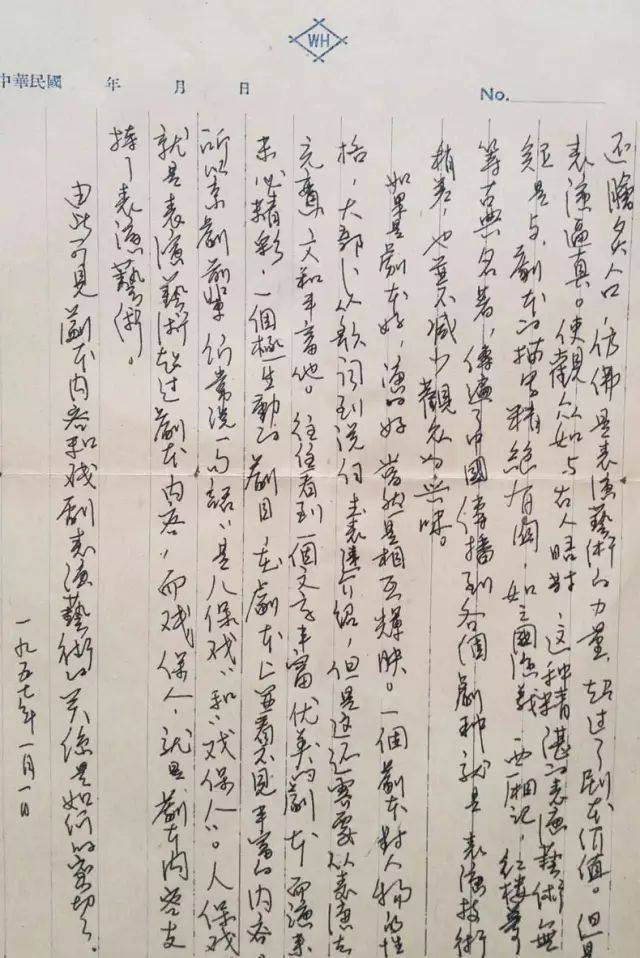 WH
中華民國 年 月 日
No.
还膾炙人口，仿佛是表演藝術的力量，超过了剧本价值。但是
表演逼真。使观众如与古人晤对，这种精湛的表演藝術無
是与劇本的描写精絕有関，如三國演義 西厢記，红楼夢
等古典名著，傳遍了中國傳播到各個劇种就是表演技術
稍差，也並不减少觀众的兴味。
如果是劇本好，演的好 當然是相互輝映。一個劇本對人物的性
格，大部分从歌詞到説白去表達介紹，但是这还需要从表演去
充實丰富他。往往看到一個文字丰富优美的劇本 而演来
未必精彩，一個極生動的劇目 在劇本上並看不見丰富的内容。
所以京劇前輩們常説一句話"是人保戏"和"戏保人"。人保戏
就是表演藝術超过劇本内容，而戏保人，就是劇本内容支
持了表演藝術。
由此可见劇本内容和戏剧表演藝術的关係是如何的密切了。
一九五七年一月一日